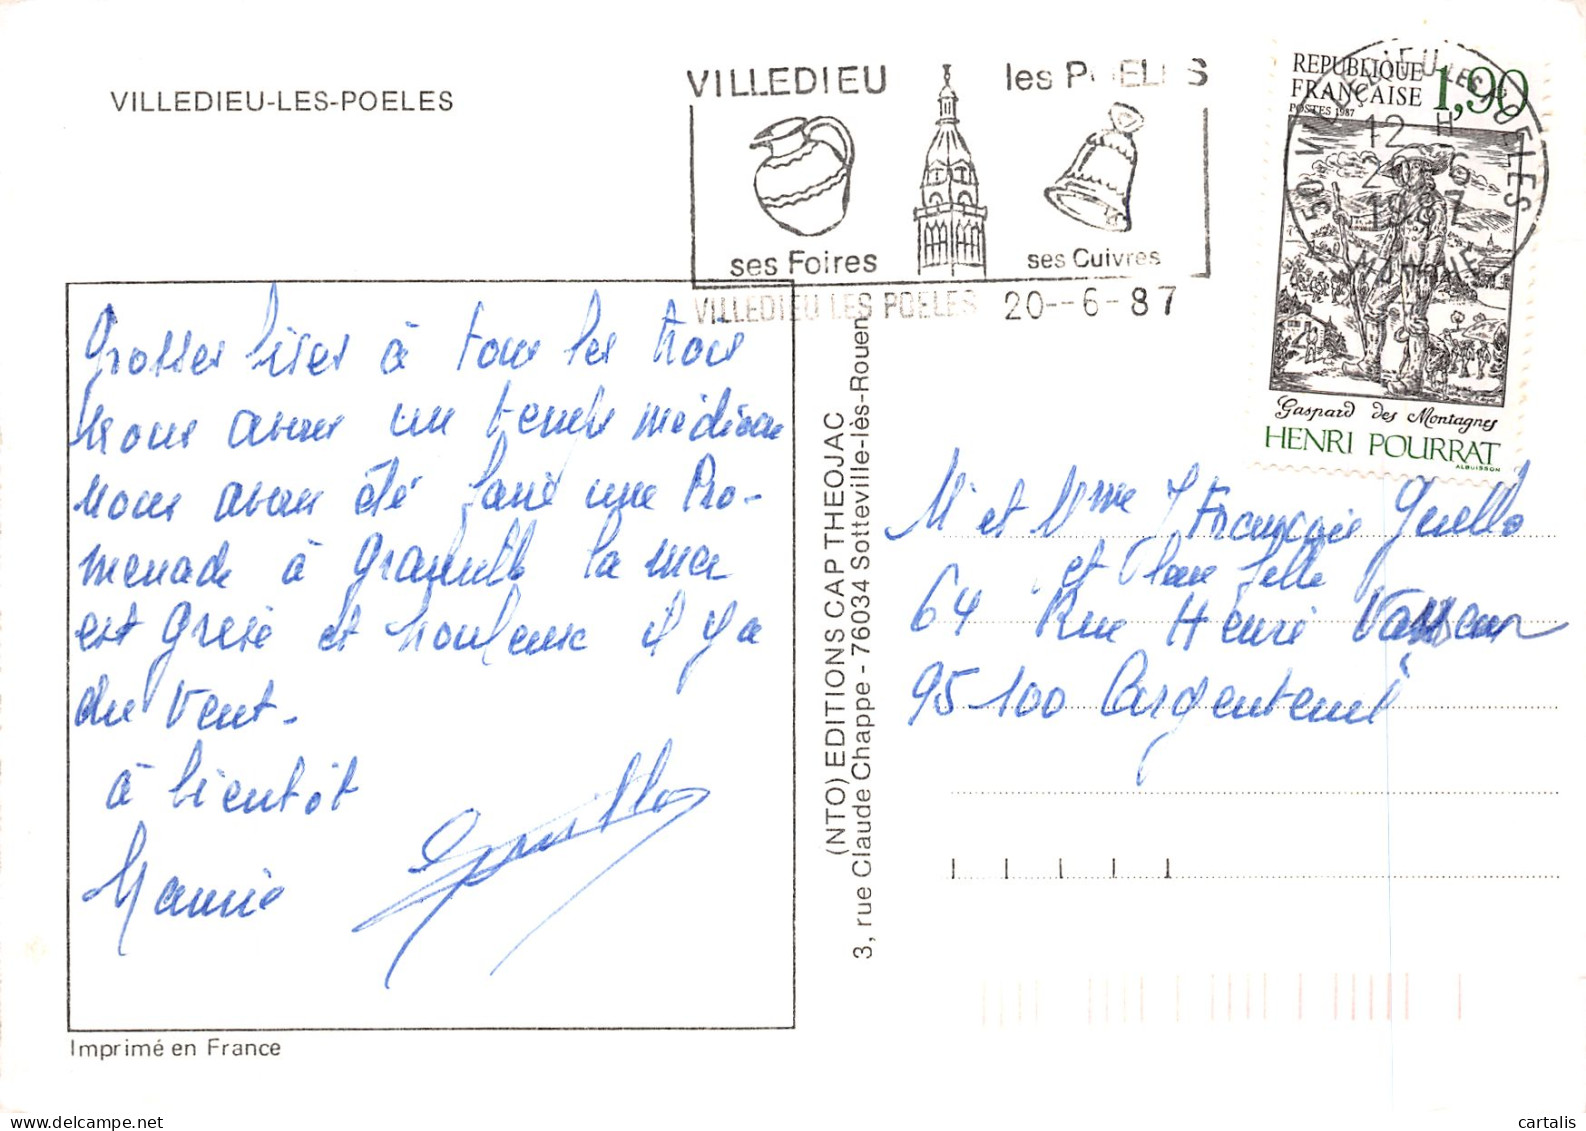 VILLEDIEU-LES-POELES
VILLEDIEU les POELES
ses Foires ses Cuivres
VILLEDIEU LES POELES 20--6-87
REPUBLIQUE
FRANÇAISE 1,90
POSTES 1987
12 H
1987
50 MANCHE
Gaspard des Montagnes
HENRI POURRAT
ALBUISSON
Grosses bises à tous les trois
nous avons un temps
nous avons été faire une Pro-
menade à Granville la mer
est grise et houleuse il y a
du vent-
à bientôt
Mamie
(NTO) EDITIONS CAP THEOJAC
3, rue Claude Chappe - 76034 Sotteville-lès-Rouen
M et Mme J François
et leur fille
64 Rue Henri Vasseur
95100 Argenteuil
Imprimé en France
cartalis